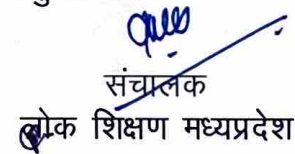 संचालक
लोक शिक्षण मध्यप्रदेश